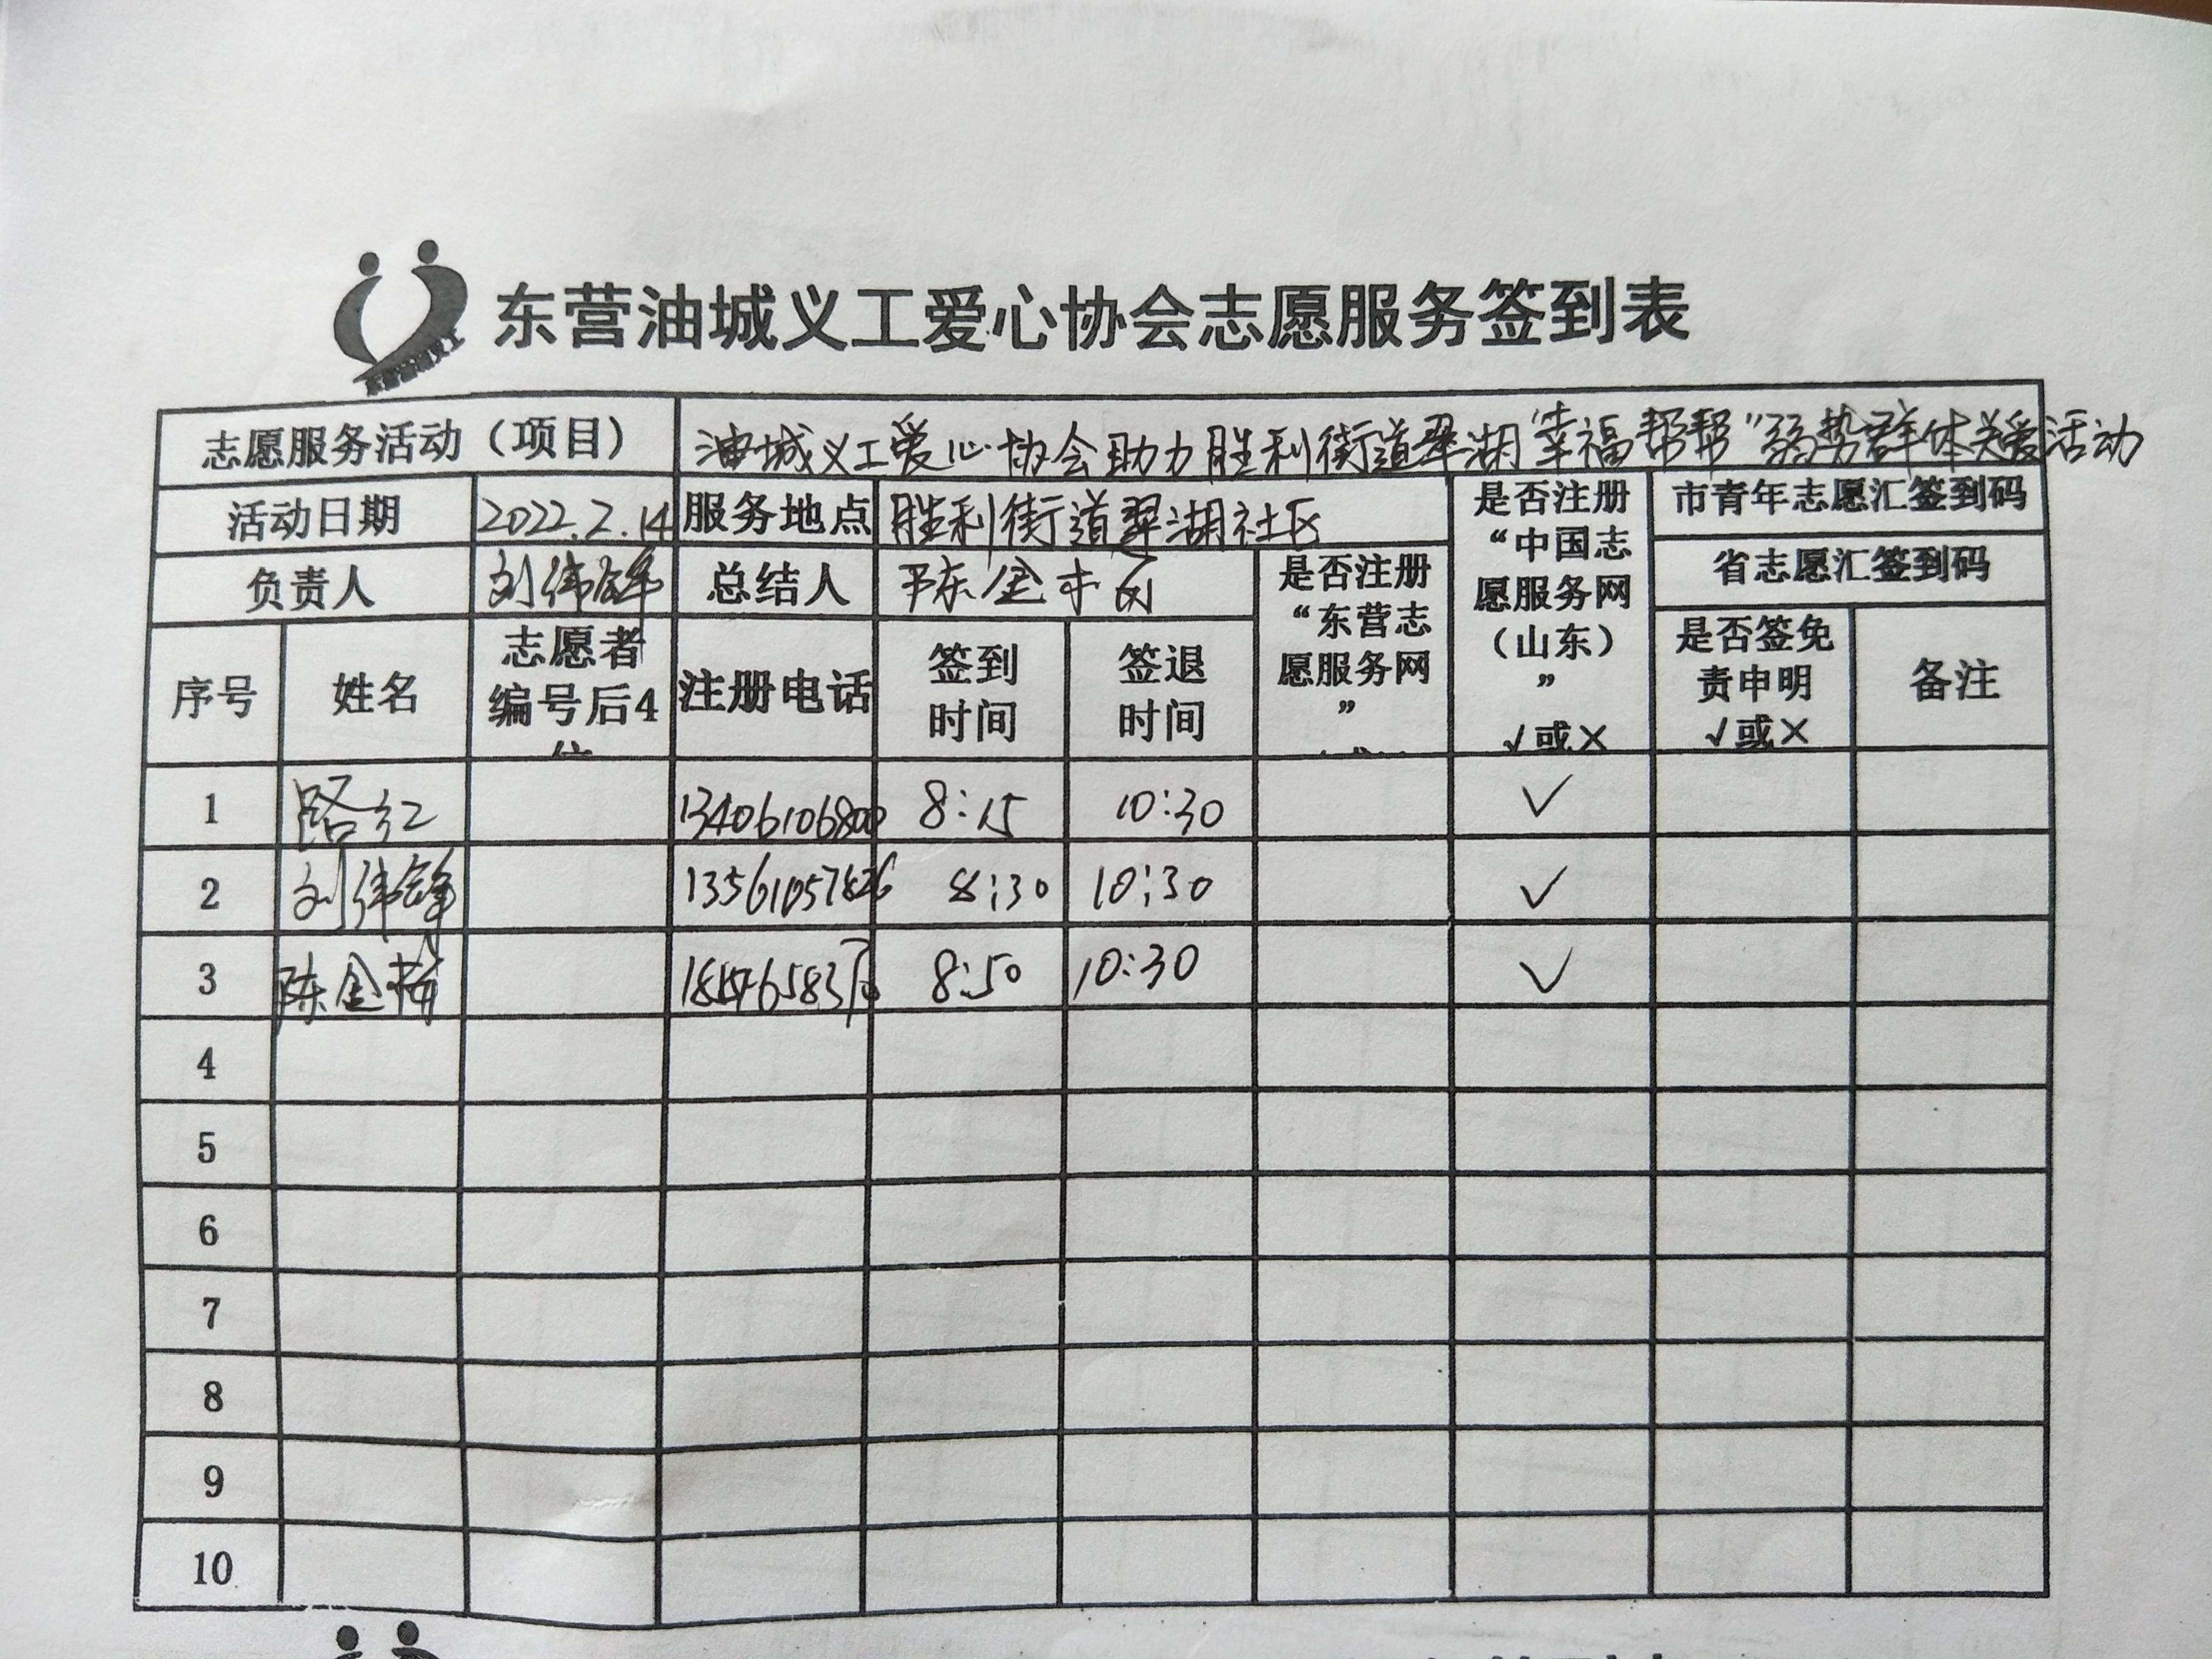 东营油城义工爱心协会志愿服务签到表
志愿服务活动（项目） 油城义工爱心协会助力胜利街道翠湖“幸福帮帮”弱势群体关爱活动
活动日期 2022.2.14 服务地点 胜利街道翠湖社区 是否注册“中国志愿服务网（山东）” √或× 市青年志愿汇签到码
省志愿汇签到码
负责人 刘伟锋 总结人 陈金 是否注册“东营志愿服务网”
序号 姓名 志愿者编号后4位 注册电话 签到时间 签退时间 是否签免责申明 √或× 备注
1 路红 13406106800 8:15 10:30 ✓
2 刘伟锋 13561057826 8:30 10:30 ✓
3 陈金 8:50 10:30 ✓
4
5
6
7
8
9
10